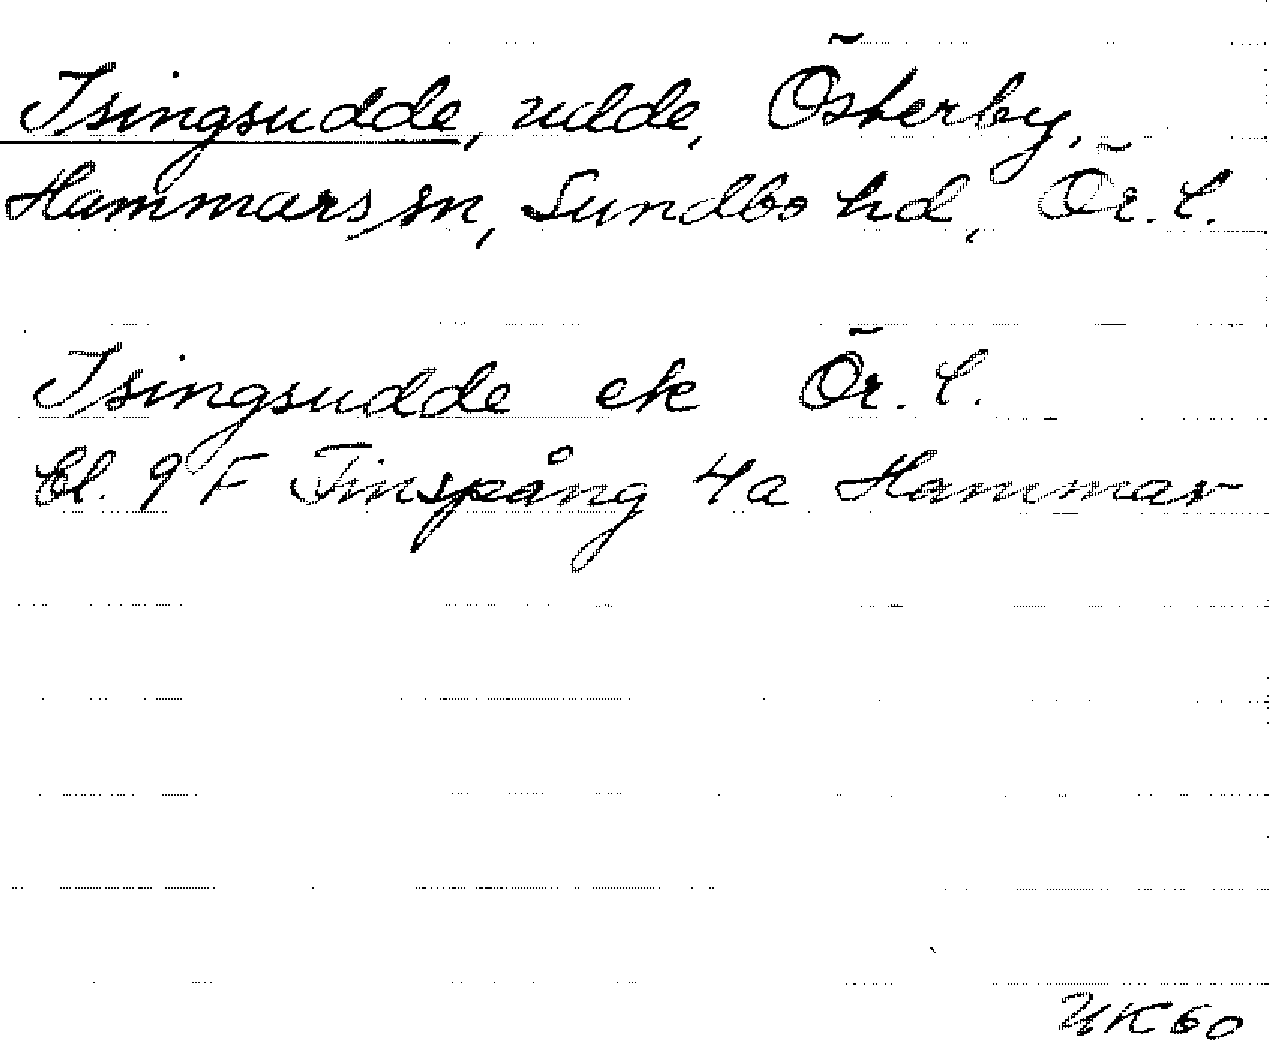 Isingsudde, udde, Österby,
Hammars sn, Sundbo hd, Ör. l.
Isingsudde ek Ör. l.
Bl. 9 F Finspång 4a Hammar
UK60